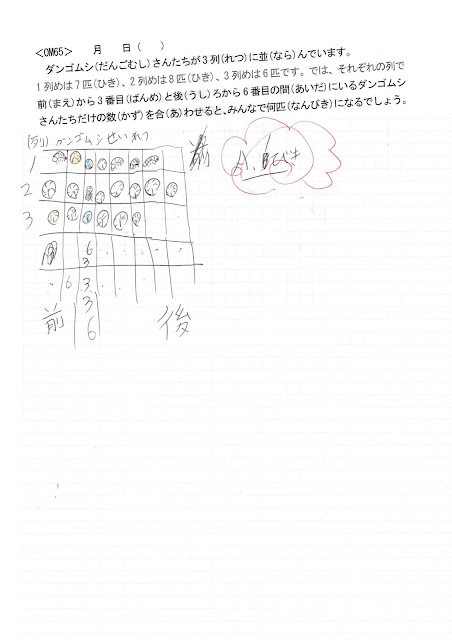 <OM65>　　月　　日（　　）
ダンゴムシ(だんごむし)さんたちが３列(れつ)に並(なら)んでいます。
１列めは７匹(ひき)、２列めは８匹(ひき)、３列めは６匹です。では、それぞれの列で
前(まえ)から３番目(ばんめ)と後(うし)ろから６番目の間(あいだ)にいるダンゴムシ
さんたちだけの数(かず)を合(あ)わせると、みんなで何匹(なんびき)になるでしょう。
(列) ダンゴムシせいれつ
1
2
3
6
3
6 3
3
6
前 後